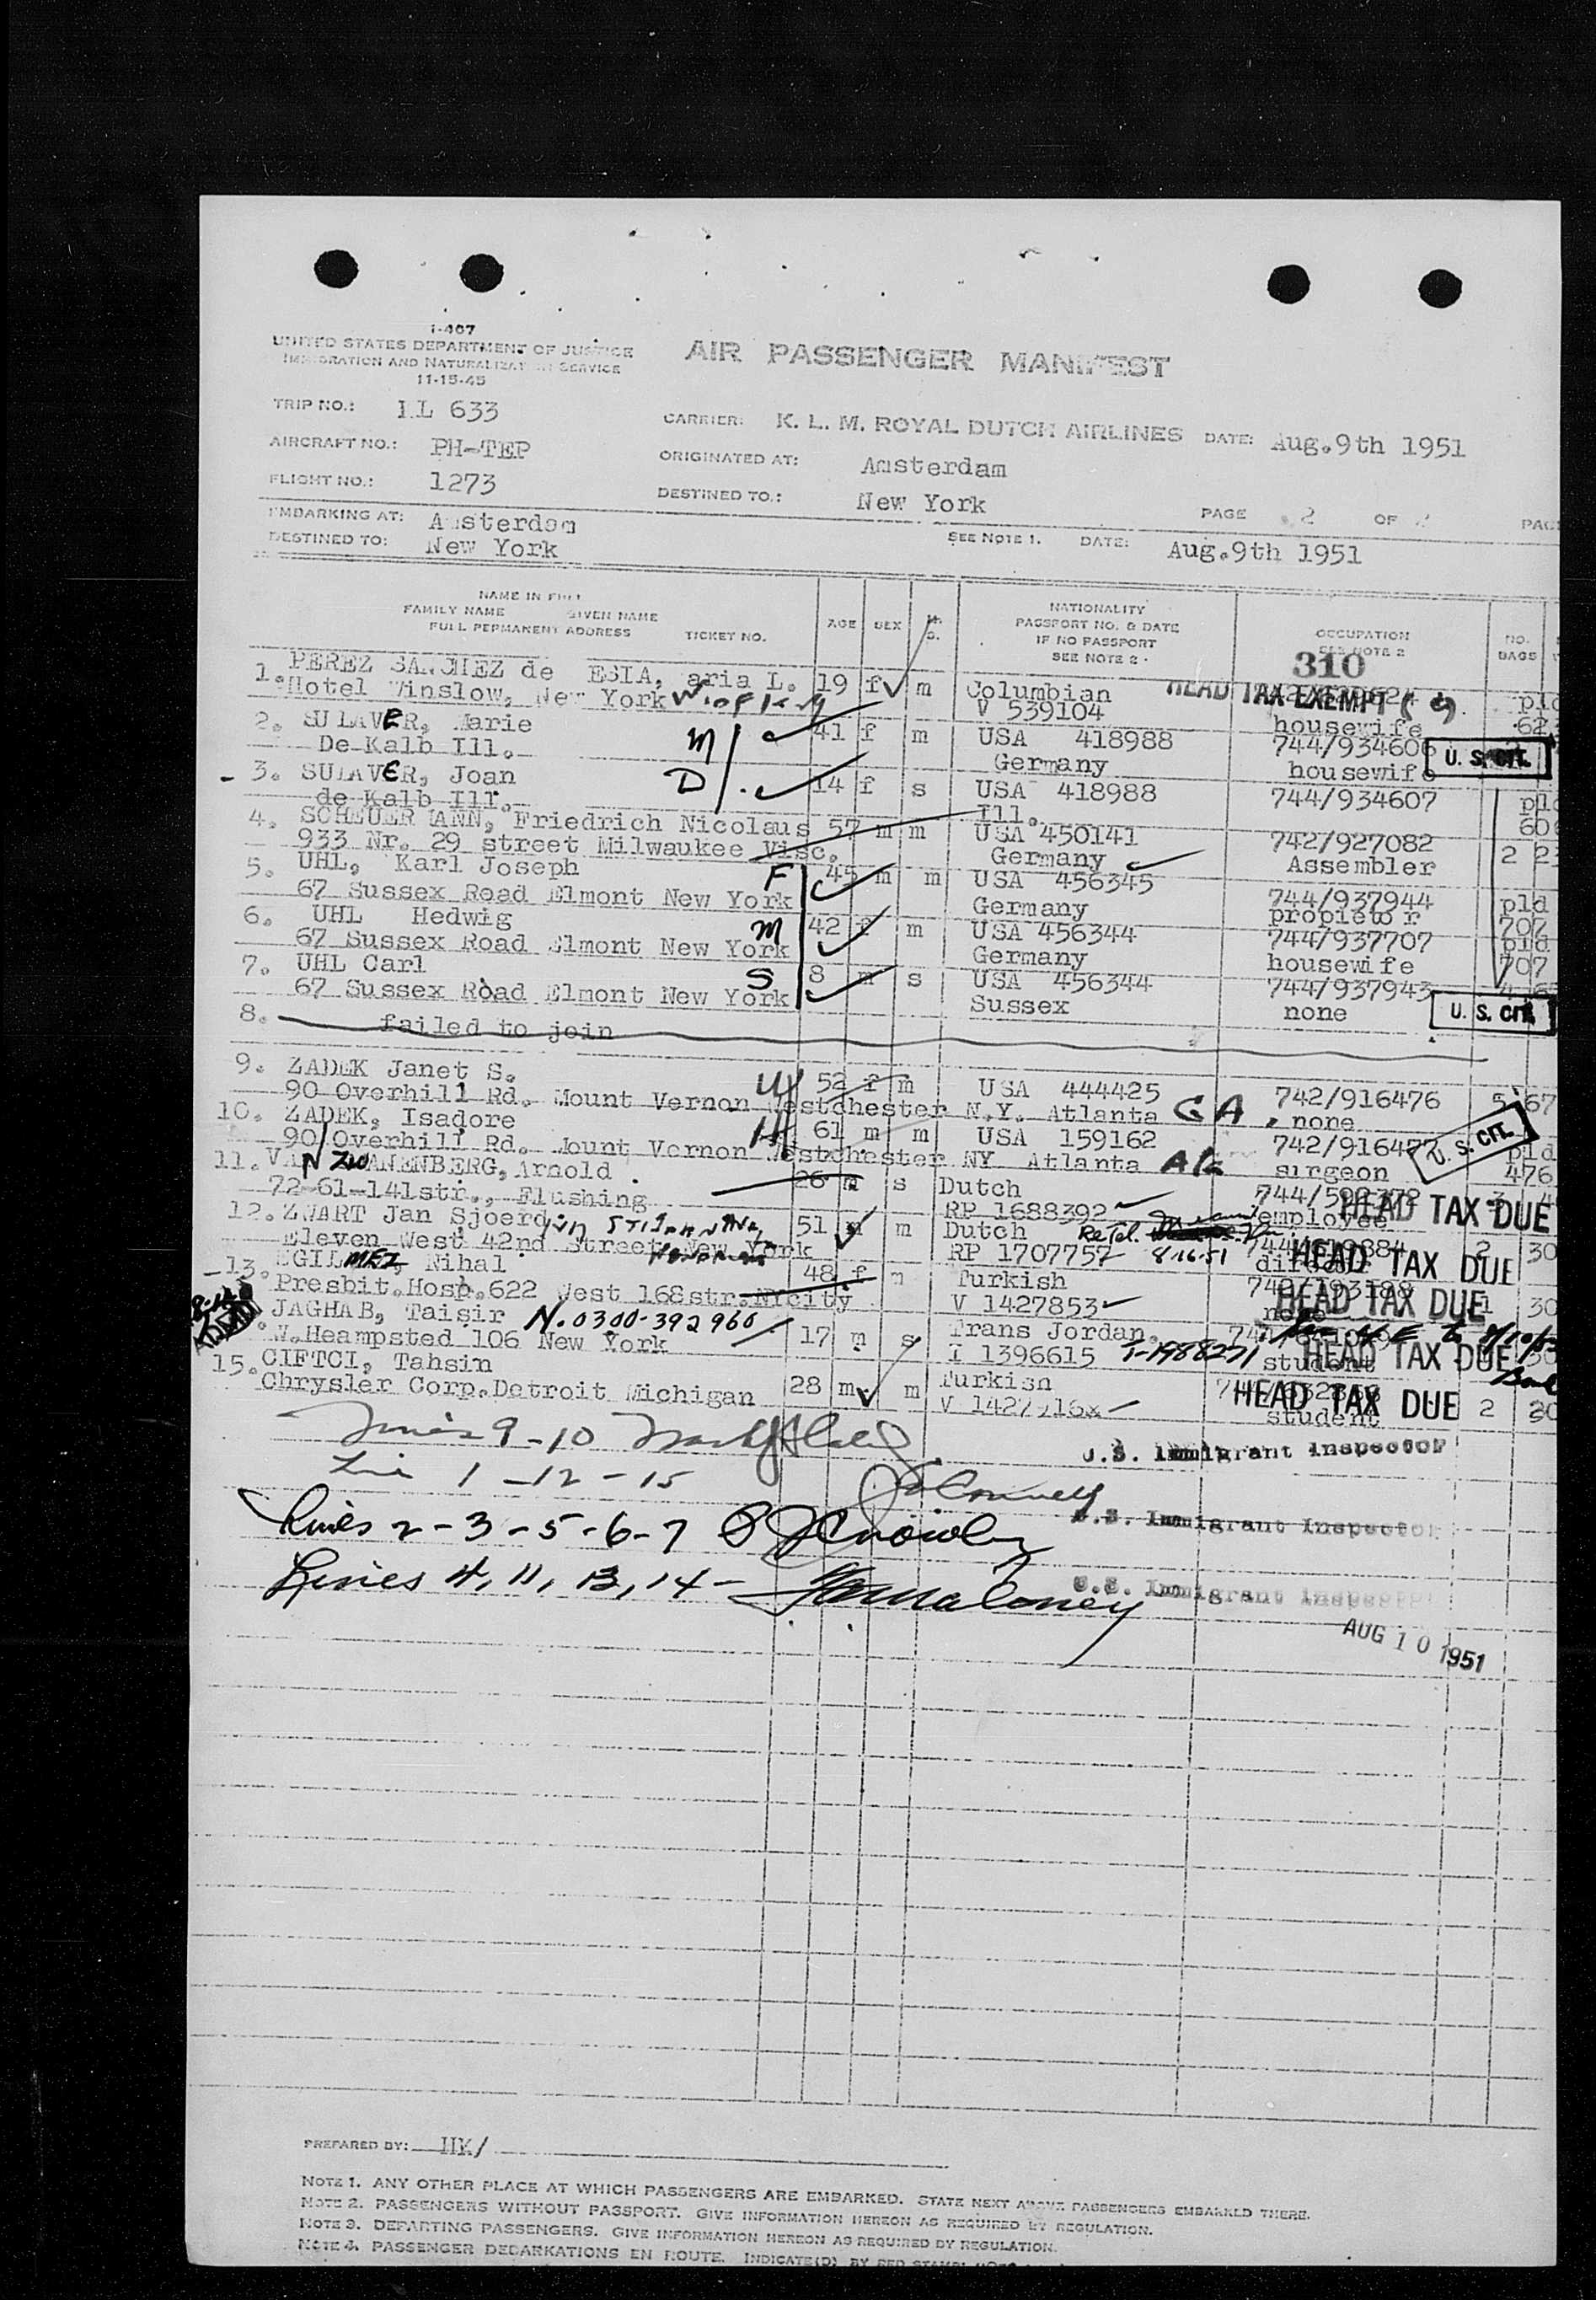 I-407
UNITED STATES DEPARTMENT OF JUSTICE
IMMIGRATION AND NATURALIZATION SERVICE
11-15-45
AIR PASSENGER MANIFEST
TRIP NO.: IL 633
CARRIER: K. L. M. ROYAL DUTCH AIRLINES DATE: Aug.9th 1951
AIRCRAFT NO.: PH-TEP
ORIGINATED AT: Amsterdam
FLIGHT NO.: 1273
DESTINED TO.: New York
PAGE 2 OF 2
EMBARKING AT: Amsterdam
DESTINED TO: New York
SEE NOTE 1. DATE: Aug.9th 1951
NAME IN FULL
FAMILY NAME GIVEN NAME
FULL PERMANENT ADDRESS TICKET NO.
AGE SEX M. S.
NATIONALITY
PASSPORT NO. & DATE
IF NO PASSPORT
SEE NOTE 2
OCCUPATION
SEE NOTE 2
NO. BAGS
310
1. PEREZ SANCHEZ de ESIA, aria L. 19 f m Columbian HEAD TAX EXEMPT
Hotel Winslow, New York V 539104 housewife
2. SULAVER, Marie M 41 f m USA 418988 744/934606
De Kalb Ill. Germany housewife U. S. CIT.
3. SULAVER, Joan D 14 f s USA 418988 744/934607 pld
de Kalb Ill. Ill.
4. SCHEUERMANN, Friedrich Nicolaus 57 m m USA 450141 742/927082
933 Nr. 29 street Milwaukee Wisc. Germany Assembler 2
5. UHL, Karl Joseph F 45 m m USA 456345 744/937944 pld
67 Sussex Road Elmont New York Germany propieto r 707
6. UHL Hedwig M 42 f m USA 456344 744/937707 pld
67 Sussex Road Elmont New York Germany housewife 707
7. UHL Carl S 8 m s USA 456344 744/937943
67 Sussex Road Elmont New York Sussex none U. S. CIT.
8. failed to join
9. ZADEK Janet S. W 52 f m USA 444425 742/916476 5 67
90 Overhill Rd. Mount Vernon Westchester N.Y. Atlanta GA , none
10. ZADEK, Isadore H 61 m m USA 159162 742/916477 pld
90 Overhill Rd. Mount Vernon Westchester NY Atlanta surgeon 476 U. S. CIT.
11. VAN ZWANENBERG, Arnold 26 m s Dutch HEAD TAX DUE
72-61-141str., Flushing RP 1688392 employee
12. ZWART Jan Sjoerd 51 m m Dutch HEAD TAX DUE
Eleven West 42nd Street New York RP 1707757 8-16-51 2 30
13. EGILMEZ, Nihal 48 f m Turkish 742/193188 HEAD TAX DUE
Presbit.Hosp.622 West 168str.NYcity V 1427853 1 30
JAGHAB, Taisir N.0300-392960 17 m s Trans Jordan.
W.Heampsted 106 New York I 1396615 T-1988271 student HEAD TAX DUE
15. CIFTCI, Tahsin 28 m m Turkish HEAD TAX DUE
Chrysler Corp.Detroit Michigan student 2 30
9-10 U.S. Immigrant Inspector
1-12-15
U.S. Immigrant Inspector
Lines 2-3-5-6-7
Lines 4, 11, 13, 14- U.S. Immigrant Inspector
AUG 10 1951
PREPARED BY: HK/
NOTE 1. ANY OTHER PLACE AT WHICH PASSENGERS ARE EMBARKED. STATE NEXT ABOVE PASSENGERS EMBARKED THERE.
NOTE 2. PASSENGERS WITHOUT PASSPORT. GIVE INFORMATION HEREON AS REQUIRED BY REGULATION.
NOTE 3. DEPARTING PASSENGERS. GIVE INFORMATION HEREON AS REQUIRED BY REGULATION.
NOTE 4. PASSENGER DEBARKATIONS EN ROUTE. INDICATE(D) BY RED STAMP